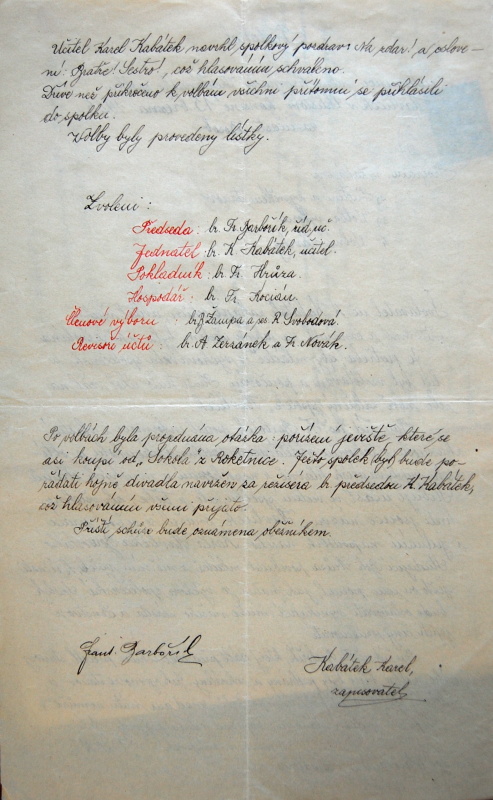 Učitel Karel Kabátek navrhl spolkový pozdrav: Na zdar! a oslove-
ní: Bratře! Sestro!, což hlasováním schváleno.
Dříve než přikročeno k volbám všichni přítomní se přihlásili
do spolku.
Volby byly provedeny lístky.
Zvoleni:
Předseda: br. Fr. Barbořík, říd. uč.
Jednatel: br. K. Kabátek, učitel.
Pokladník: br. Fr. Hrůza.
Hospodář: br. Fr. Kocián.
Členové výboru: br. Žampa a ses. R. Svobodová.
Revisoři účtů: br. A. Zeršánek a Fr. Novák.
Po volbách byla projednána otázka pořízení jeviště, které se
asi koupí od „Sokola" z Roketnice. Ježto spolek bude po-
řádati hojně divadla navržen za režiséra br. předsedou K. Kabátek,
což hlasováním všemi přijato.
Příští schůze bude oznámena oběžníkem.
Frant. Barbořík
Kabátek Karel,
zapisovatel